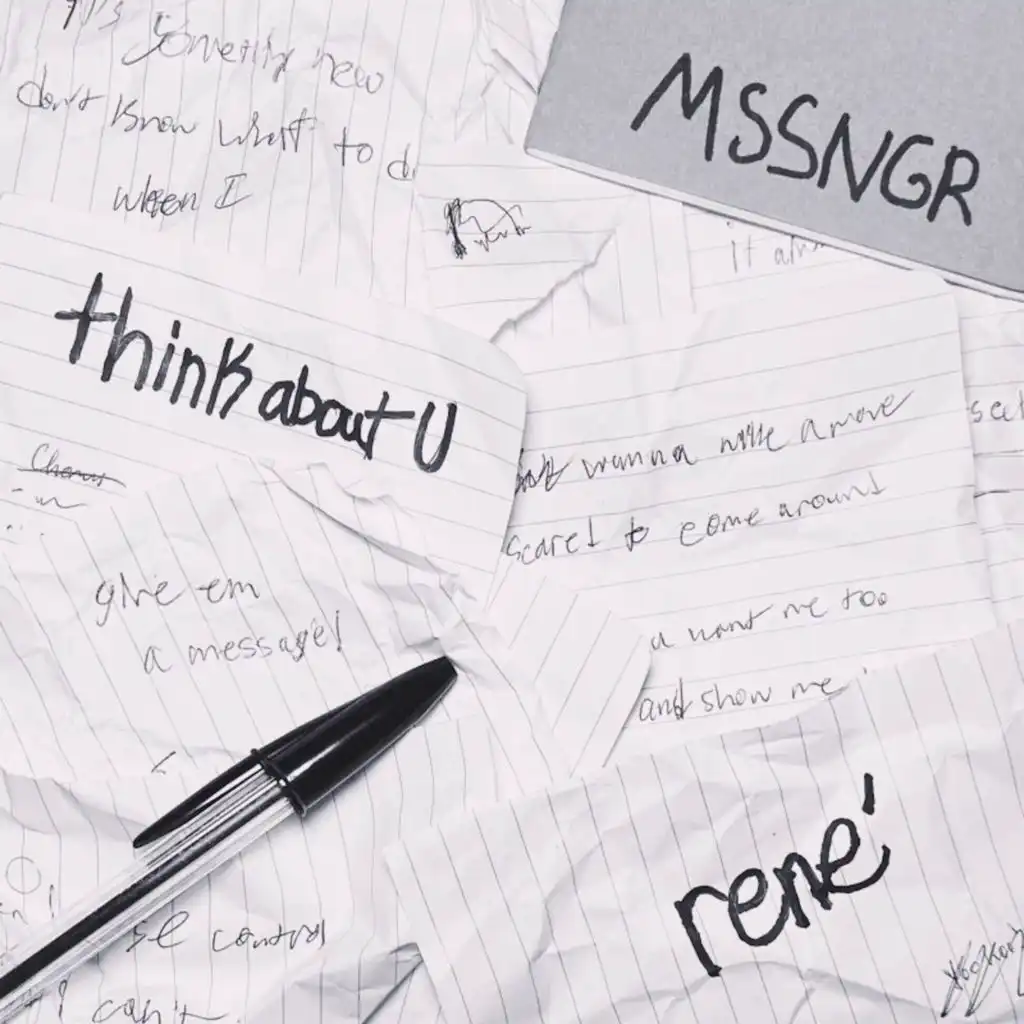 Something new
don't know what to do
when I
MSSNGR
it
think about U
wanna make a move
scared to come around
give em
a message!
u want me too
and show me
rené
control
I can't